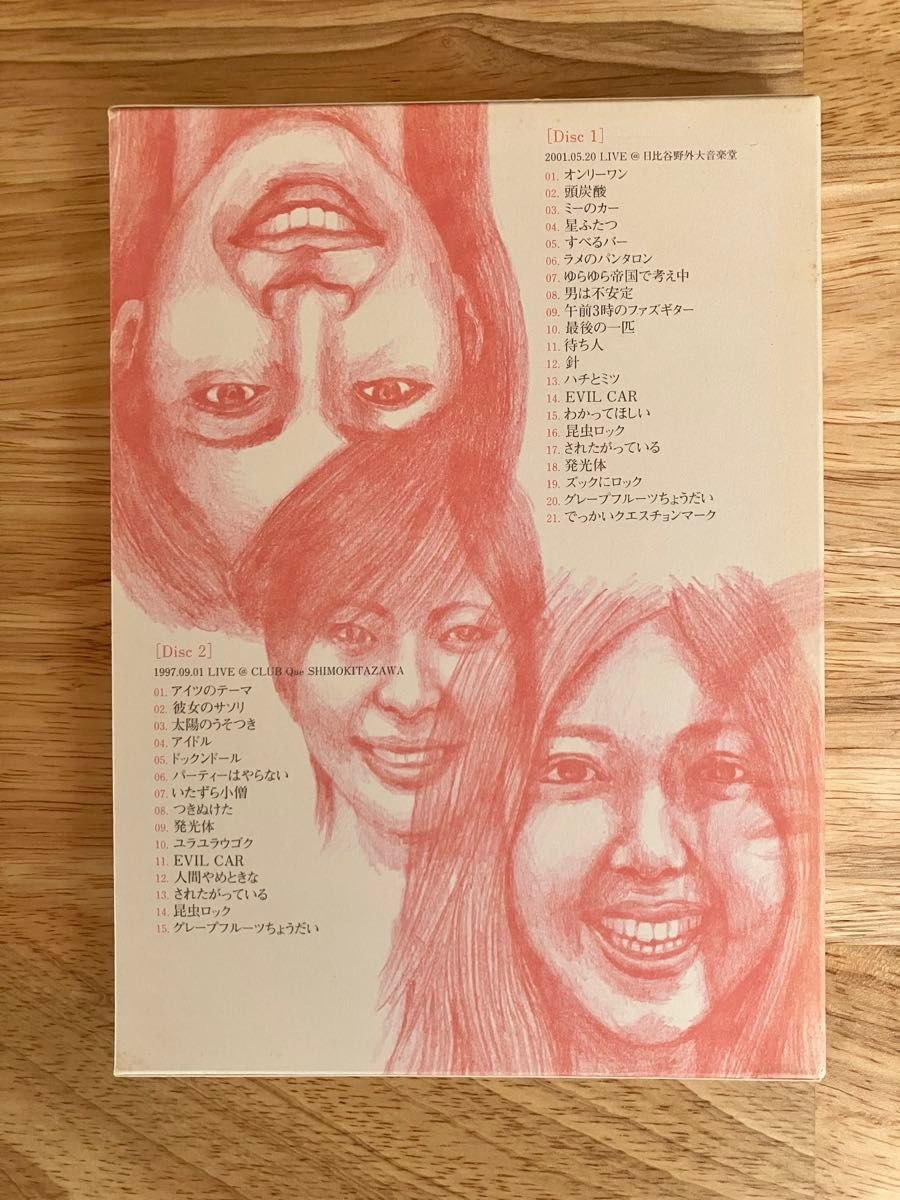 [Disc 1]
2001.05.20 LIVE @ 日比谷野外大音楽堂
01. オンリーワン
02. 頭炭酸
03. ミーのカー
04. 星ふたつ
05. すべるバー
06. ラメのパンタロン
07. ゆらゆら帝国で考え中
08. 男は不安定
09. 午前3時のファズギター
10. 最後の一匹
11. 待ち人
12. 針
13. ハチとミツ
14. EVIL CAR
15. わかってほしい
16. 昆虫ロック
17. されたがっている
18. 発光体
19. ズックにロック
20. グレープフルーツちょうだい
21. でっかいクエスチョンマーク
[Disc 2]
1997.09.01 LIVE @ CLUB Que SHIMOKITAZAWA
01. アイツのテーマ
02. 彼女のサソリ
03. 太陽のうそつき
04. アイドル
05. ドックンドール
06. パーティーはやらない
07. いたずら小僧
08. つきぬけた
09. 発光体
10. ユラユラウゴク
11. EVIL CAR
12. 人間やめときな
13. されたがっている
14. 昆虫ロック
15. グレープフルーツちょうだい